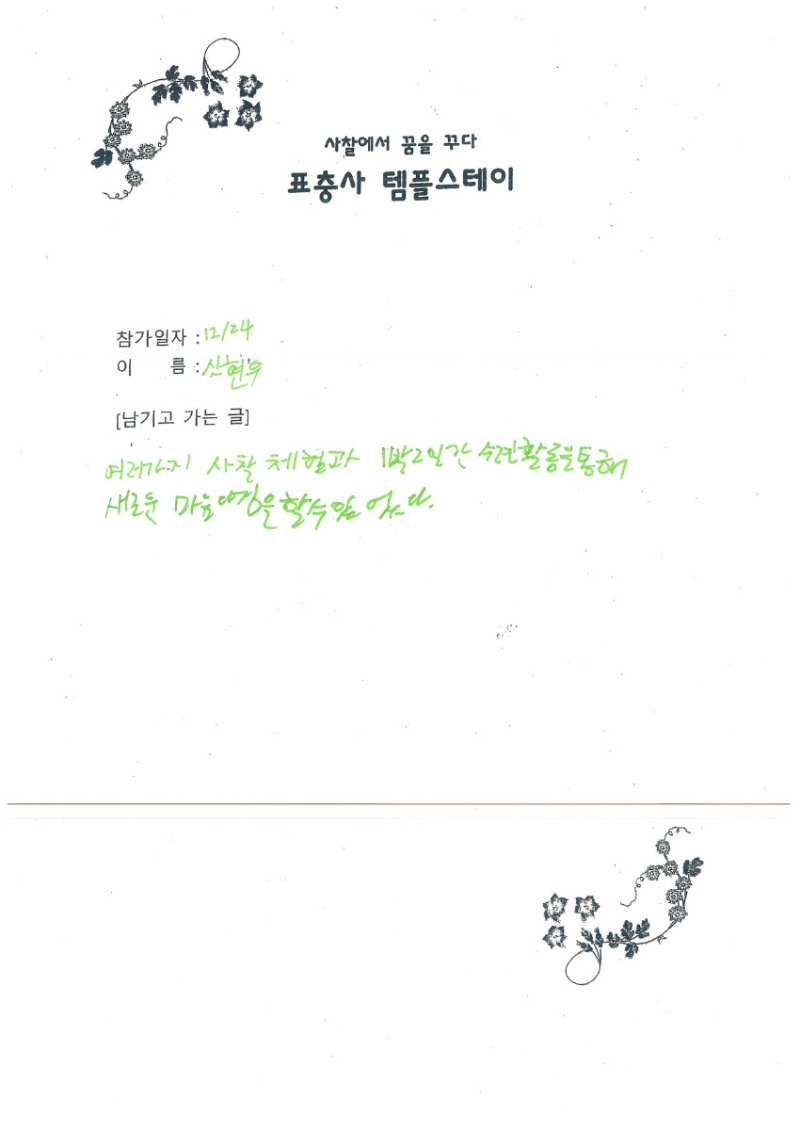 사찰에서 꿈을 꾸다
표충사 템플스테이
참가일자 : 12/24
이 름 : 신현우
[남기고 가는 글]
여러가지 사찰 체험과 1박2일간 수련활동을통해
새로운 마음다짐을할수있 었다.